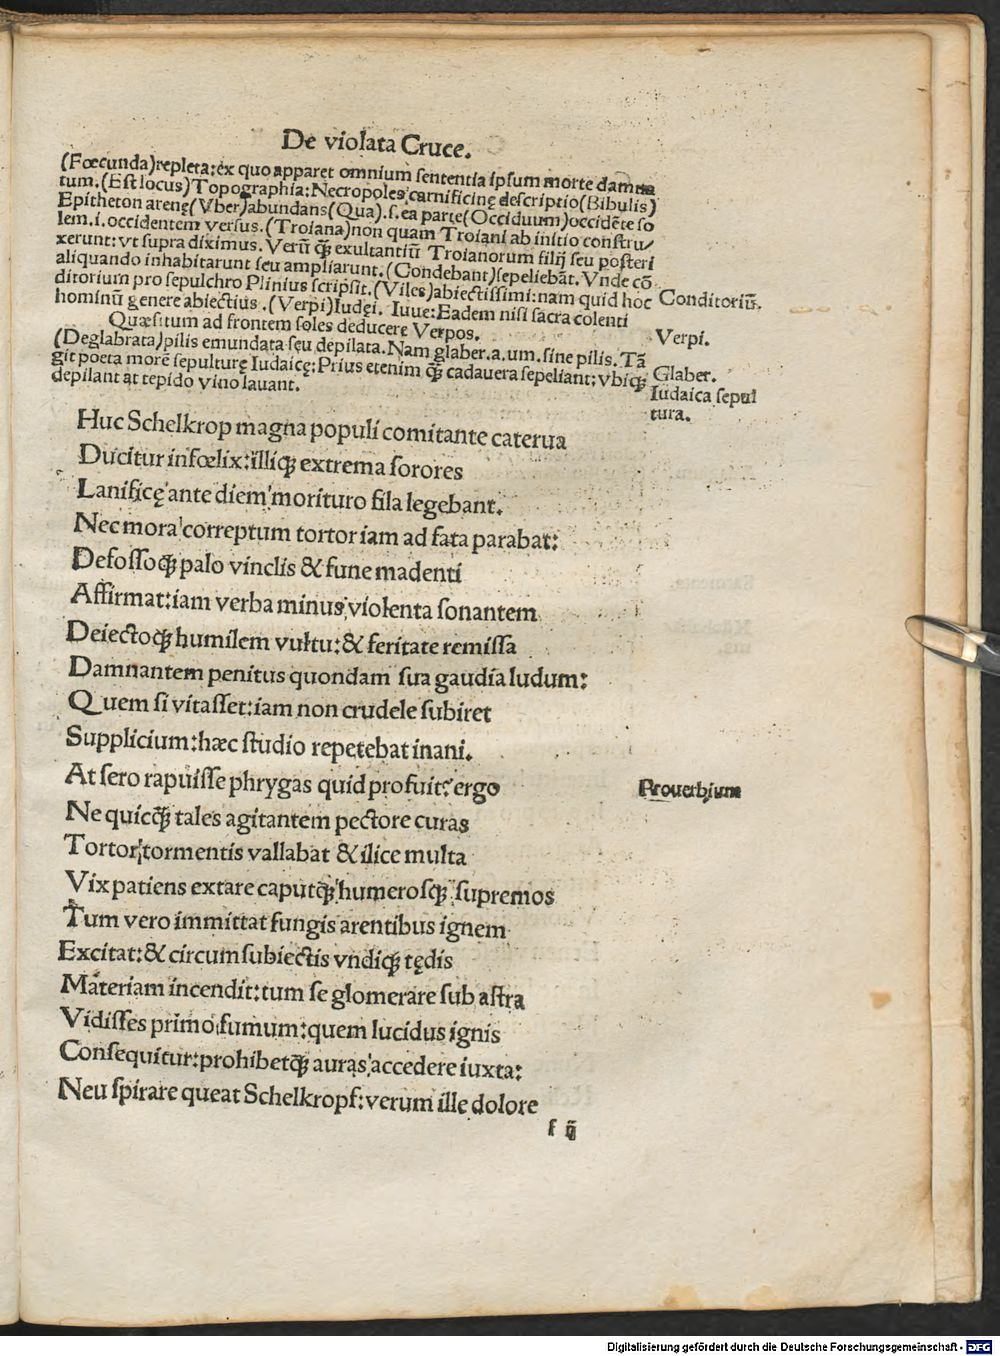 De violata Cruce.
(Fœcunda)repleta:ex quo apparet omnium sententia ipsum morte damna
tum.(Est locus)Topographia:Necropoles carnificinę descriptio(Bibulis)
Epitheton arenę(Vber)abundans(Qua).s.ea parte(Occiduum)occidẽte so
lem.i.occidentem versus.(Troiana)non quam Troiani ab initio constru/
xerunt:vt supra diximus. Verũ qꝫ exultantiũ Troianorum filij seu posteri
aliquando inhabitarunt seu ampliarunt.(Condebant)sepeliebãt. Vnde cõ
ditorium pro sepulchro Plinius scripsit.(Viles)abiectissimi:nam quid hoc
Conditoriũ.
hominũ genere abiectius.(Verpi)Iudęi. Iuue:Eadem nisi sacra colenti
Quæsitum ad frontem soles deducere Verpos.
Verpi.
(Deglabrata)pilis emundata seu depilata.Nam glaber.a.um.sine pilis. Tã
git poeta morẽ sepulturę Iudaicę:Prius etenim qꝫ cadauera sepeliant:vbiqꝫ
Glaber.
depilant at tepido vino lauant.
Iudaica sepul
tura.
Huc Schelkrop magna populi comitante caterua
Ducitur infœlix:illiqꝫ extrema sorores
Lanificę ante diem morituro fila legebant.
Nec mora correptum tortor iam ad fata parabat:
Defossoqꝫ palo vinclis & fune madenti
Affirmat:iam verba minus violenta sonantem
Deiectoqꝫ humilem vultu:& feritate remissa
Damnantem penitus quondam sua gaudia ludum:
Quem si vitasset:iam non crudele subiret
Supplicium:hæc studio repetebat inani.
At sero rapuisse phrygas quid profuit?ergo
Prouerbium
Ne quicqꝫ tales agitantem pectore curas
Tortor tormentis vallabat & ilice multa
Vix patiens extare caputqꝫ humerosqꝫ supremos
Tum vero immittat fungis arentibus ignem
Excitat:& circum subiectis vndiqꝫ tędis
Materiam incendit:tum se glomerare sub astra
Vidisses primo fumum:quem lucidus ignis
Consequitur:prohibetqꝫ auras accedere iuxta:
Neu spirare queat Schelkropf:verum ille dolore
f ij
Digitalisierung gefördert durch die Deutsche Forschungsgemeinschaft - DFG